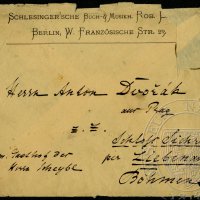 SCHLESINGER'SCHE BUCH- & MUSIKH. ROB. L.
BERLIN, W. FRANZÖSISCHE STR. 23.
Herrn Anton Dvořák
aus Prag
z. Z.
Schloß
per Liebenau
Gasthof der
Böhmen